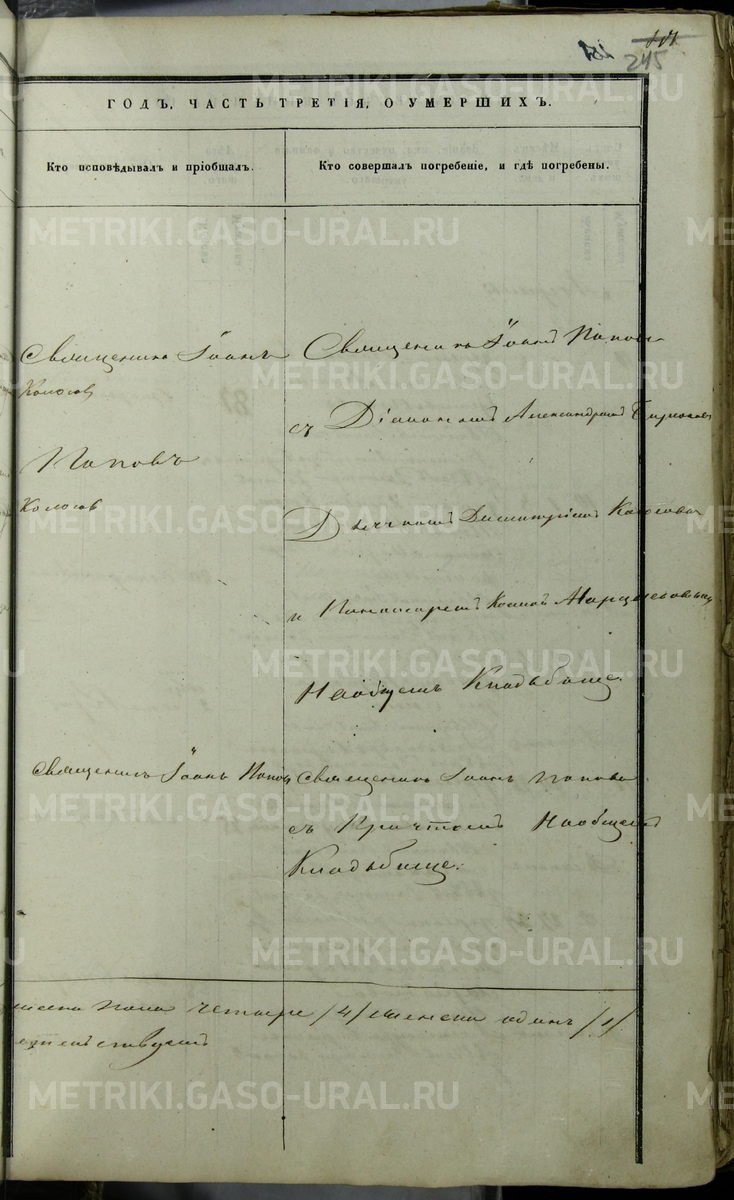 181
245
ГОДЪ, ЧАСТЬ ТРЕТІЯ, О УМЕРШИХЪ.
Кто исповѣдывалъ и пріобщалъ.
Кто совершалъ погребеніе, и гдѣ погребены.
Священникъ Іоаннъ
Колосовъ
Поповъ
Колосов
Священникъ Іоаннъ Попов
Священникъ Іоаннъ Попов
съ Діакономъ Александромъ
Дьячкомъ Димитріемъ
и Пономаремъ
На общемъ Кладьбище.
Священникъ Іоаннъ Поповъ
съ Причтомъ На общемъ
Кладьбище.
пола четыре /4/ женска одинъ /1/
METRIKI.GASO-URAL.RU